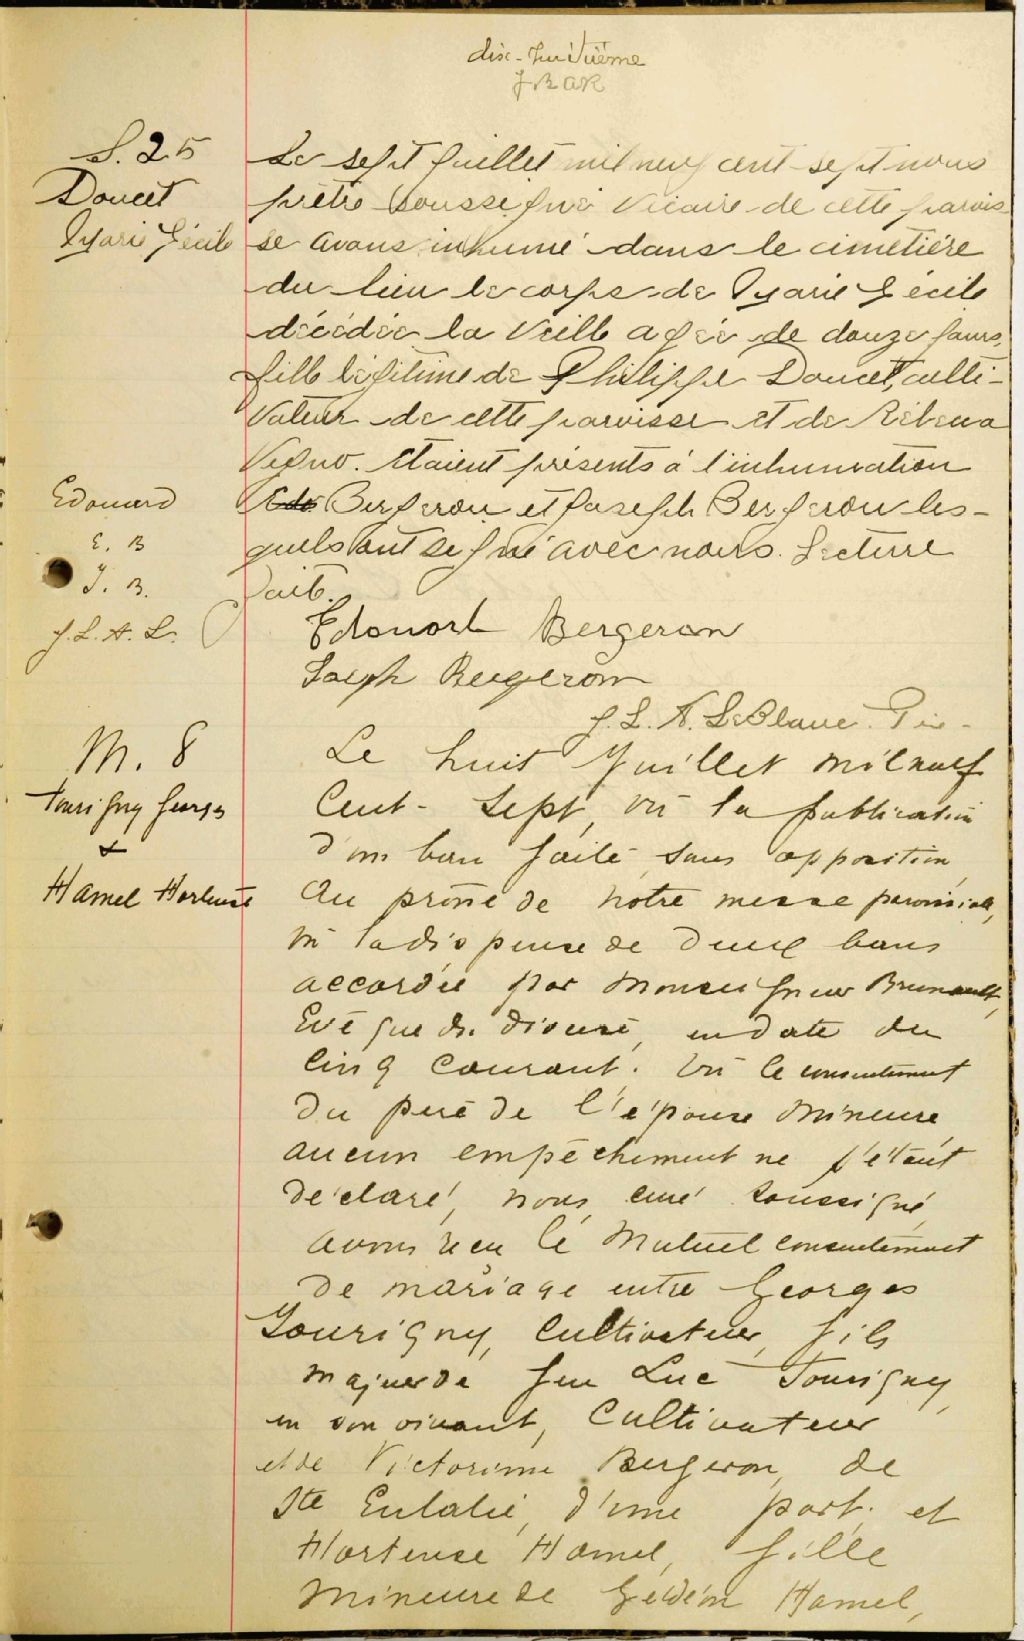 dix-huitième
JBAR
S. 25
Doucet
Marie Cécile
Le sept Juillet mil neuf cent-sept nous
prêtre soussigné Vicaire de cette parois
se avons inhumé dans le cimetière
du lieu le corps de Marie Cécile
décédée la Veille agée de douze jours,
fille légitime de Philippe Doucet, culti-
vateur de cette paroisse et de
Étaient présents à l'inhumation
Edouard
E. B
J. B.
J. L. A. L.
Edo Bergeron et Joseph Bergeron les-
quels ont signé avec nous. Lecture
faite.
Edouard Bergeron
Joseph Bergeron
J. L. A. LeBlanc Ptre.
M. 8
Tourigny Georges
&
Hamel Hortense
Le huit Juillet mil neuf
Cent-Sept, vu la publication
d'un ban faite, sans opposition,
au prône de notre messe paroissiale,
vu la dispense de deux bans
accordée par Monseigneur Brunault,
Evêque du diocèse, en date du
cinq courant. Vu le consentement
du père de l'épouse mineure
aucun empêchement ne s'étant
déclaré, nous, curé soussigné,
avons reçu le Mutuel consentement
de mariage entre Georges
Tourigny, Cultivateur, fils
majeur de feu Luc Tourigny,
en son vivant, Cultivateur
et de Victorine Bergeron, de
Ste Eulalie, d'une part, et
Hortense Hamel, fille
mineure de Gédéon Hamel,